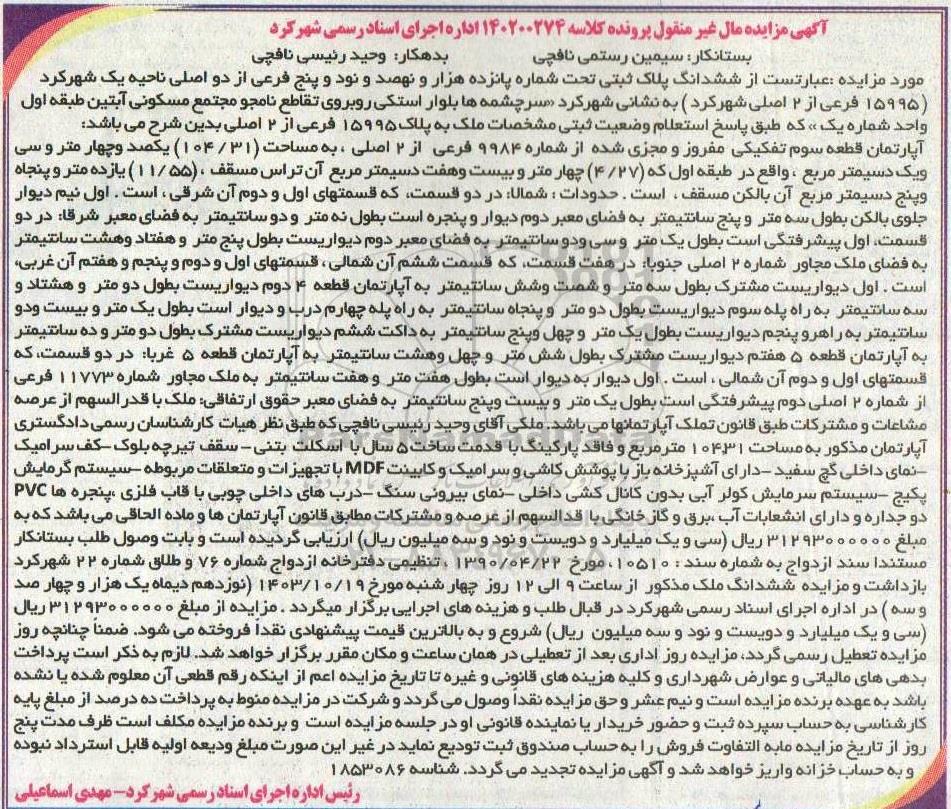 آگهی مزایده مال غیر منقول پرونده کلاسه ۱۴۰۲۰۰۲۷۴ اداره اجرای اسناد رسمی شهرکرد
بستانکار: سیمین رستمی نافچی بدهکار: وحید رئیسی نافچی
مورد مزایده :عبارتست از ششدانگ پلاک ثبتی تحت شماره پانزده هزار و نهصد و نود و پنج فرعی از دو اصلی ناحیه یک شهرکرد
( ۱۵۹۹۵ فرعی از ۲ اصلی شهرکرد ) به نشانی شهرکرد «سرچشمه ها بلوار استکی روبروی تقاطع نامجو مجتمع مسکونی آبتین طبقه اول
واحد شماره یک » که طبق پاسخ استعلام وضعیت ثبتی مشخصات ملک به پلاک ۱۵۹۹۵ فرعی از ۲ اصلی بدین شرح می باشد:
آپارتمان قطعه سوم تفکیکی مفروز و مجزی شده از شماره ۹۹۸۴ فرعی از ۲ اصلی ، به مساحت (۱۰۴/۳۱) یکصد وچهار متر و سی
ویک دسیمتر مربع ، واقع در طبقه اول که (۴/۲۷) چهار متر و بیست وهفت دسیمتر مربع آن تراس مسقف ، (۱۱/۵۵) یازده متر و پنجاه
وپنج دسیمتر مربع آن بالکن مسقف ، است . حدودات : شمالا: در دو قسمت، که قسمتهای اول و دوم آن شرقی ، است . اول نیم دیوار
جلوی بالکن بطول سه متر و پنج سانتیمتر به فضای معبر دوم دیوار و پنجره است بطول نه متر و دو سانتیمتر به فضای معبر شرقا: در دو
قسمت، اول پیشرفتگی است بطول یک متر و سی ودو سانتیمتر به فضای معبر دوم دیواریست بطول پنج متر و هفتاد وهشت سانتیمتر
به فضای ملک مجاور شماره ۲ اصلی جنوبا: در هفت قسمت، که قسمت ششم آن شمالی ، قسمتهای اول و دوم و پنجم و هفتم آن غربی،
است . اول دیواریست مشترک بطول سه متر و شصت وشش سانتیمتر به آپارتمان قطعه ۴ دوم دیواریست بطول دو متر و هشتاد و
سه سانتیمتر به راه پله سوم دیواریست بطول دو متر و پنجاه سانتیمتر به راه پله چهارم درب و دیوار است بطول یک متر و بیست ودو
سانتیمتر به راهرو پنجم دیواریست بطول یک متر و چهل وپنج سانتیمتر به داکت ششم دیواریست مشترک بطول دو متر و ده سانتیمتر
به آپارتمان قطعه ۵ هفتم دیواریست مشترک بطول شش متر و چهل وهشت سانتیمتر به آپارتمان قطعه ۵ غربا: در دو قسمت، که
قسمتهای اول و دوم آن شمالی ، است . اول دیوار به دیوار است بطول هفت متر و هفت سانتیمتر به ملک مجاور شماره ۱۱۷۷۳ فرعی
از شماره ۲ اصلی دوم پیشرفتگی است بطول یک متر و بیست وپنج سانتیمتر به فضای معبر حقوق ارتفاقی: ملک با قدر السهم از عرصه
مشاعات و مشترکات طبق قانون تملک آپارتمانها می باشد. ملکی آقای وحید رئیسی نافچی که طبق نظر هیات کارشناسان رسمی دادگستری
آپارتمان مذکور به مساحت ۱۰۴.۳۱ مترمربع و فاقد پارکینگ با قدمت ساخت ۵ سال با اسکلت بتنی- سقف تیرچه بلوک -کف سرامیک
-نمای داخلی گچ سفید -دارای آشپزخانه باز با پوشش کاشی و سرامیک و کابینت MDF با تجهیزات و متعلقات مربوطه -سیستم گرمایش
پکیج -سیستم سرمایش کولر آبی بدون کانال کشی داخلی -نمای بیرونی سنگ -درب های داخلی چوبی با قاب فلزی ،پنجره ها PVC
دو جداره و دارای انشعابات آب ،برق و گاز خانگی با قدالسهم از عرصه و مشترکات مطابق قانون آپارتمان ها و ماده الحاقی می باشد که به
مبلغ ۳۱۲۹۳۰۰۰۰۰۰ ریال (سی و یک میلیارد و دویست و نود و سه میلیون ریال) ارزیابی گردیده است و بابت وصول طلب بستانکار
مستندا سند ازدواج به شماره سند : ۱۰۵۱۰، مورخ ۱۳۹۰/۰۴/۲۲ ، تنظیمی دفترخانه ازدواج شماره ۷۶ و طلاق شماره ۲۲ شهرکرد
بازداشت و مزایده ششدانگ ملک مذکور از ساعت ۹ الی ۱۲ روز چهار شنبه مورخ ۱۴۰۳/۱۰/۱۹ (نوزدهم دیماه یک هزار و چهار صد
و سه ) در اداره اجرای اسناد رسمی شهرکرد در قبال طلب و هزینه های اجرایی برگزار میگردد . مزایده از مبلغ ۳۱۲۹۳۰۰۰۰۰۰ ریال
(سی و یک میلیارد و دویست و نود و سه میلیون ریال) شروع و به بالاترین قیمت پیشنهادی نقداً فروخته می شود. ضمناً چنانچه روز
مزایده تعطیل رسمی گردد، مزایده روز اداری بعد از تعطیلی در همان ساعت و مکان مقرر برگزار خواهد شد. لازم به ذکر است پرداخت
بدهی های مالیاتی و عوارض شهرداری و کلیه هزینه های قانونی و غیره تا تاریخ مزایده اعم از اینکه رقم قطعی آن معلوم شده یا نشده
باشد به عهده برنده مزایده است و نیم عشر و حق مزایده نقداً وصول می گردد و شرکت در مزایده منوط به پرداخت ده درصد از مبلغ پایه
کارشناسی به حساب سپرده ثبت و حضور خریدار یا نماینده قانونی او در جلسه مزایده است و برنده مزایده مکلف است ظرف مدت پنج
روز از تاریخ مزایده مابه التفاوت فروش را به حساب صندوق ثبت تودیع نماید در غیر این صورت مبلغ ودیعه اولیه قابل استرداد نبوده
و به حساب خزانه واریز خواهد شد و آگهی مزایده تجدید می گردد. شناسه ۱۸۵۳۰۸۶
رئیس اداره اجرای اسناد رسمی شهرکرد- مهدی اسماعیلی